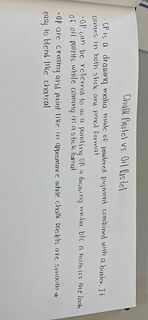 Chalk Pastel vs. Oil Pastel
- CP is a drawing media made of powdered pigment combined with a binder. It
comes in both stick and pencil format
- OP can be referred to as a painting or a drawing media b/c is mimics the look
of oil paints while coming in a stick format
- OP are creamy and paint like in appearance while chalk pastels are smooth &
easy to blend like charcoal